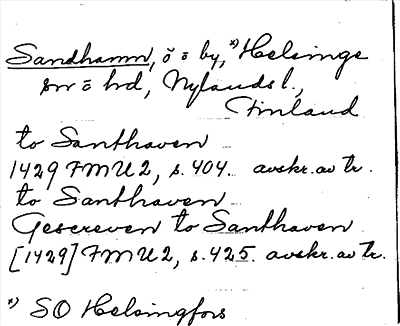 Sandhamn, ö o by, *) Helsinge
sn o hd, Nylands l.,
Finland
to Santhaven
1429 FMU 2, s. 404. avskr. av tr.
to Santhaven
Gescreven to Santhaven
[1429] FMU 2, s. 425. avskr. av tr.
*) SO Helsingfors